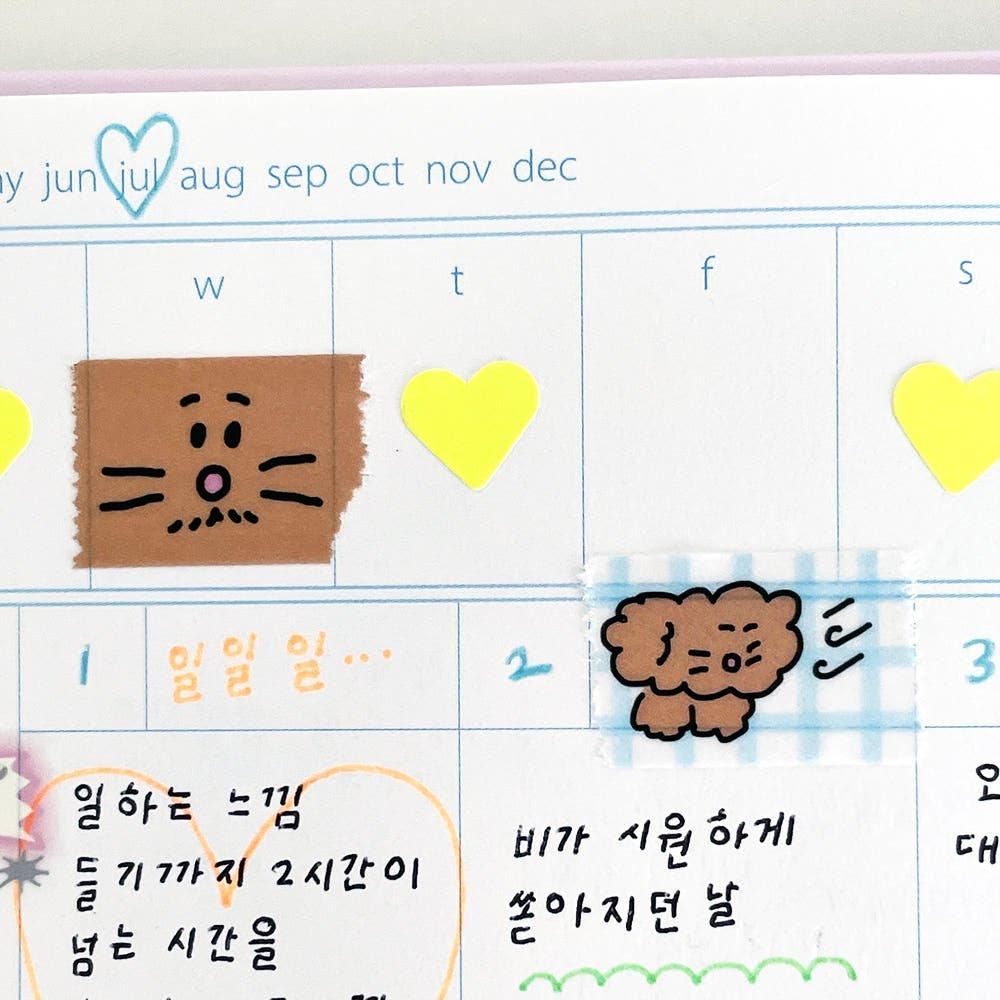 jun jul aug sep oct nov dec
w t f s
1 일 일 일... 2 3
일하는 느낌
들기까지 2시간이
넘는 시간을
비가 시원하게
쏟아지던 날
오
대